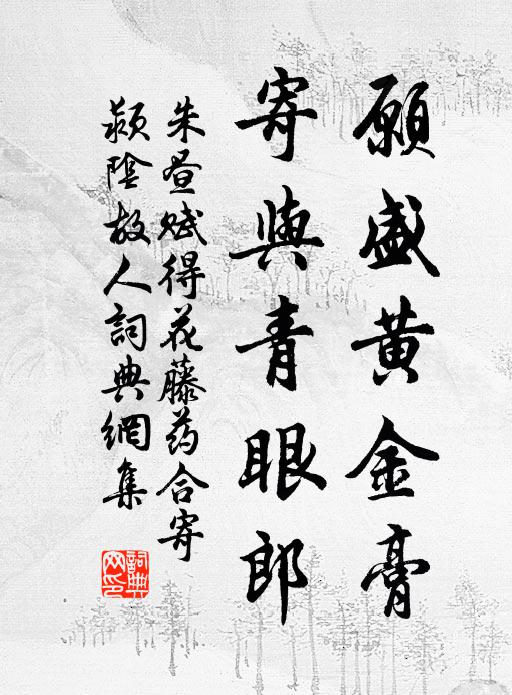 願盛黄金膏
寄與青眼郎
朱昼赋得花藤药合寄
颍陰故人詞典網集
詞典网印